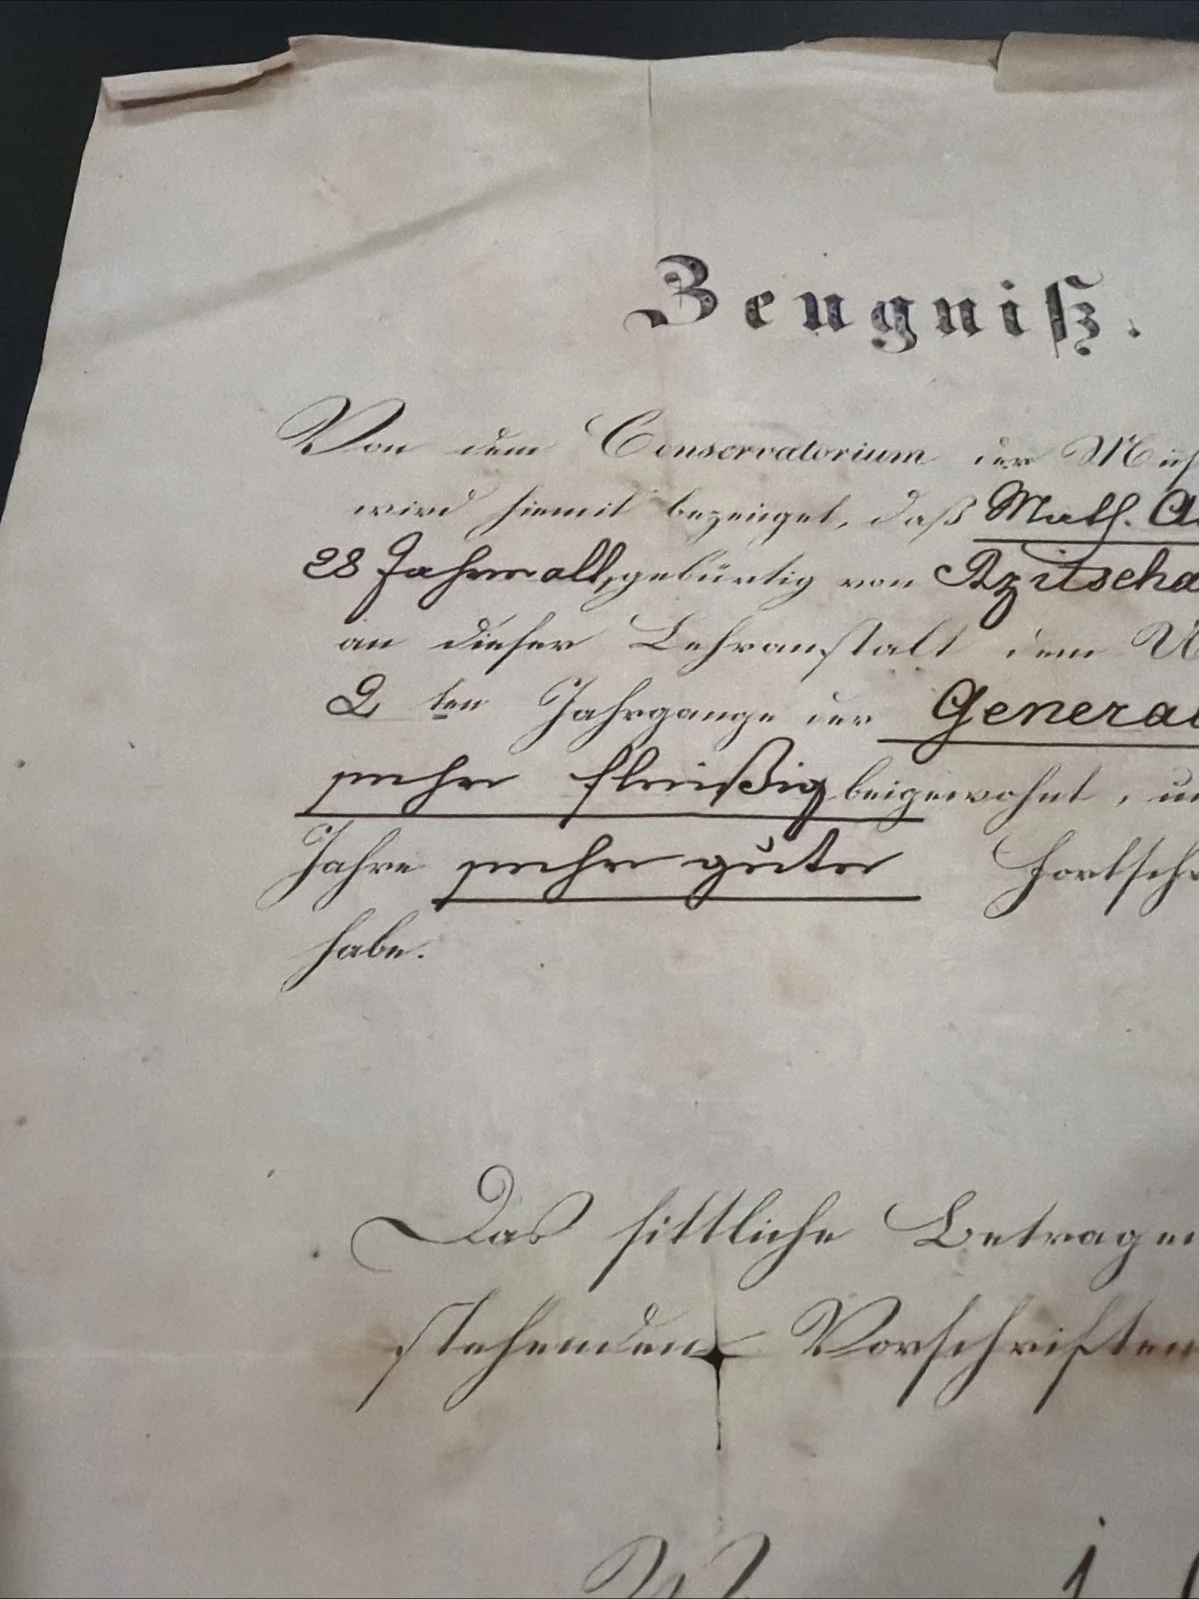 Zeugniß.
Von dem Conservatorium der Mus
wird hiemit bezeuget, daß Math. A
28 Jahre alt, gebürtig von Rzitscha
an dieser Lehranstalt dem U
2 ten Jahrgange der General
sehr fleißig beigewohnt, un
Jahre sehr gute Fortschr
habe.
Das sittliche Betragen
stehenden Vorschriften